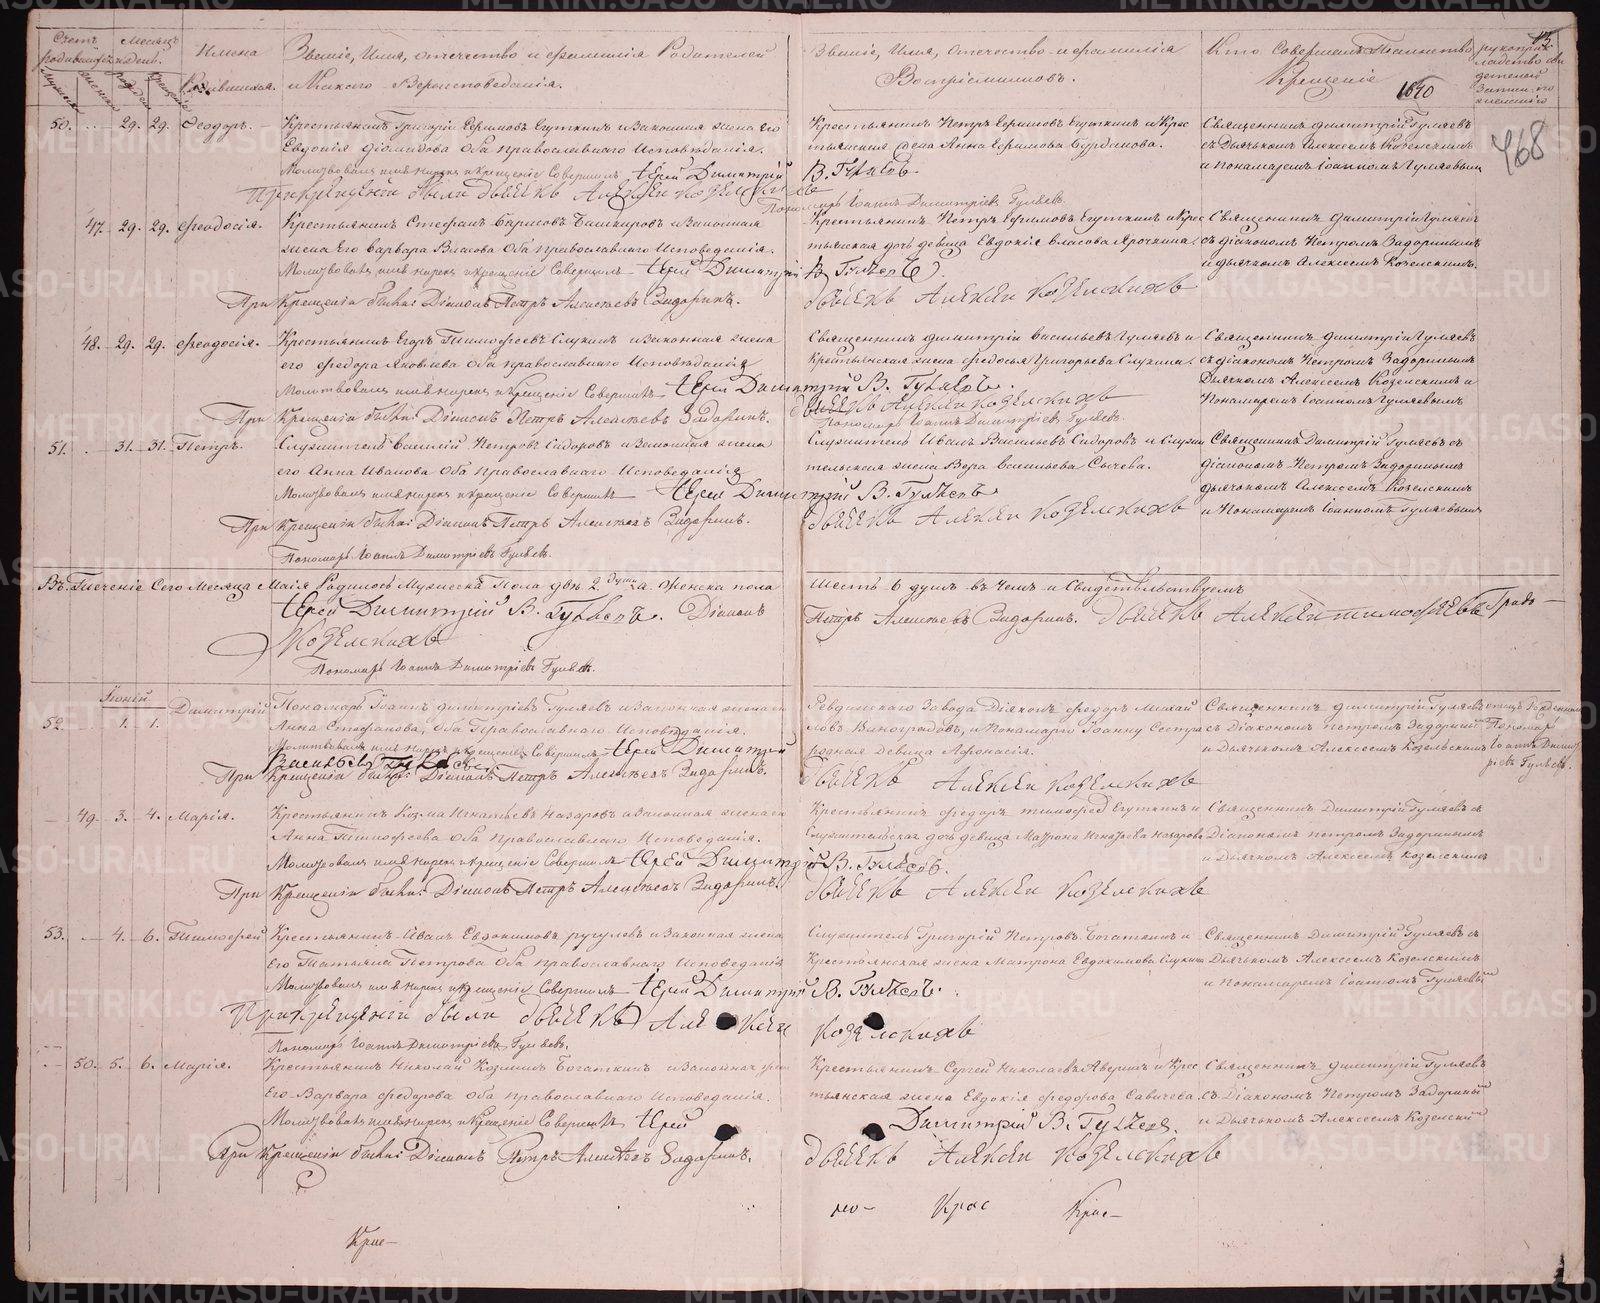 Счетъ родившихся
Месяцъ и день
Имена Родившихся.
Званіе, Имя, отечество и фамилія Родителей
и Какого Вероисповеданія.
Званіе, Имя, отечество и фамилія
Воспріемниковъ.
Кто Совершалъ Таинство
Крещеніе
1640
468
50. 29. 29. Феодоръ.
Крестьянинъ Григорій Ефимовъ Егуткинъ и Законная жена его
Евдокія Діомидова Оба православнаго Исповѣданія.
Крестьянинъ Петръ Ефимовъ Егуткинъ и Крес
тьянская Анна Ефимова Бурдакова.
Священникъ Димитрій Гуляевъ
съ Дьячкомъ Алексеемъ Козелскимъ
и пономаремъ Іоанномъ Гуляевымъ
Молитвовалъ имя нарекъ и крещеніе Совершилъ Іерей Димитрій В. Гуляевъ.
При крещеніи были дьячекъ Алексей Козелскихъ
Пономарь Іоаннъ Димитріевъ Гуляевъ.
47. 29. 29. Феодосія.
Крестьянинъ Стефанъ Башкировъ и Законная
жена Его Варвара Власова Оба православнаго Исповеданія.
Крестьянинъ Петръ Ефимовъ Егуткинъ и Крес
тьянская дочь девица Евдокія Власова Ярочкина
Священникъ Димитрій Гуляевъ
съ діакономъ Петромъ Задоринымъ
и дьячкомъ Алексеемъ Козелскимъ.
Молитвовалъ имя нарекъ и крещеніе Совершилъ Іерей Димитрій В. Гуляевъ.
При Крещеніи были: Діаконъ Петръ Алексеевъ Задоринъ.
дьячекъ Алексей Козелскихъ
48. 29. 29. Феодосія.
Крестьянинъ Егоръ Тимофеевъ Слукинъ и законная жена
его Федора Яковлева Оба православнаго Исповѣданія
Священникъ Димитрій Васильевъ Гуляевъ и
Крестьянская жена Федосья Григорьева Слукина
Священникъ Димитрій Гуляевъ
съ діакономъ Петромъ Задоринымъ
Дьячкомъ Алексеемъ Козелскимъ и
Пономаремъ Іоанномъ Гуляевымъ
Молитвовалъ имя нарекъ и Крещеніе Совершилъ Іерей Димитрій В. Гуляевъ.
При Крещеніи были: Діаконъ Петръ Алексеевъ Задоринъ.
дьячекъ Алексей Козелскихъ
Пономарь Іоаннъ Димитріевъ Гуляевъ.
51. 31. 31. Петръ.
Служитель Василій Петровъ Сидоровъ и Законная жена
его Анна Иванова Оба православнаго Исповеданія
Служитель Иванъ Васильевъ Сидоровъ и Служи
тельская жена Вера Васильева Сычева.
Священникъ Димитрій Гуляевъ съ
діакономъ Петромъ Задоринымъ
дьячкомъ Алексеемъ Козелскимъ
и Пономаремъ Іоанномъ Гуляевымъ
Молитвовалъ имя нарекъ и крещеніе Совершилъ Іерей Димитрій В. Гуляевъ
При Крещеніи были: Діаконъ Петръ Алексеевъ Задоринъ.
дьячекъ Алексей Козелскихъ
Пономарь Іоаннъ Димитріевъ Гуляевъ.
Въ Теченіе Сего Месяца Маія Родилось Мужеска Пола две 2 души а Женска пола
шесть 6 душъ въ чемъ и Свидѣтельствуемъ
Іерей Димитрій В. Гуляевъ. Діаконъ
Петръ Алексеевъ Задоринъ. дьячекъ Алексей Тимофеевъ
Козелскихъ
Пономарь Іоаннъ Димитріевъ Гуляевъ.
Іюній
52. 1. 1. Димитрій
Пономарь Іоаннъ Димитріевъ Гуляевъ и Законная жена его
Анна Стефанова, Оба Православнаго Исповѣданія.
Ревдинскаго Завода Діаконъ Федоръ Михай
ловъ Виноградовъ, и Пономарю Іоанну Сестра
родная Девица Афонасія.
Священникъ Димитрій Гуляевъ
съ Діакономъ Петромъ Задоринымъ
и Дьячкомъ Алексеемъ Козельскимъ
Пономарь
Іоаннъ Димит
ріевъ Гуляевъ.
Молитвовалъ имя нарекъ и крещеніе Совершилъ Іерей Димитрій
Васильевъ Гуляевъ
При Крещеніи были: Діаконъ Петръ Алексеевъ Задоринъ.
дьячекъ Алексей Козелскихъ
49. 3. 4. Марія.
Крестьянинъ Козма Игнатьевъ Назаровъ и Законная жена его
Анна Тимофеева Оба православнаго Исповеданія.
Крестьянинъ Федоръ Тимофеев Егуткинъ и
Служительская дочь девица Матрона Игнатьева Назарова
Священникъ Димитрій Гуляевъ съ
Діакономъ Петромъ Задоринымъ
и Дьячкомъ Алексеемъ Козелскимъ
Молитвовалъ имя нарекъ и крещеніе Совершилъ Іерей Димитрій В. Гуляевъ.
При Крещеніи были: Діаконъ Петръ Алексеевъ Задоринъ.
дьячекъ Алексей Козелскихъ
53. 4. 6. Тимофей
Крестьянинъ Иванъ Евдокимовъ и Законная жена
Его Татьяна Петрова Оба православнаго Исповеданія
Служитель Григорій Петровъ Богаткинъ и
Крестьянская жена Матрона Евдокимова Слукина
Священникъ Димитрій Гуляевъ съ
Дьячкомъ Алексеемъ Козелскимъ
и Пономаремъ Іоанномъ Гуляевымъ
Молитвовалъ имя нарекъ и крещеніе Совершилъ Іерей Димитрій В. Гуляевъ.
При крещеніи были дьячекъ Алексей Козелскихъ
Пономарь Іоаннъ Димитріевъ Гуляевъ.
50. 5. 6. Марія.
Крестьянинъ Николай Козминъ Богаткинъ и Законная жена
Его Варвара Федорова Оба православнаго Исповеданія.
Крестьянинъ Сергей Николаевъ Аверинъ и Крес
тьянская жена Евдокія Федорова Савичева.
Священникъ Димитрій Гуляевъ
съ Діакономъ Петромъ Задоринымъ
и Дьячкомъ Алексеемъ Козелскимъ
Молитвовалъ имя нарекъ и Крещеніе Совершилъ Іерей Димитрій В. Гуляевъ.
При Крещеніи были: Діаконъ Петръ Алексеевъ Задоринъ.
дьячекъ Алексей Козелскихъ
Крас
METRIKI.GASO-URAL.RU